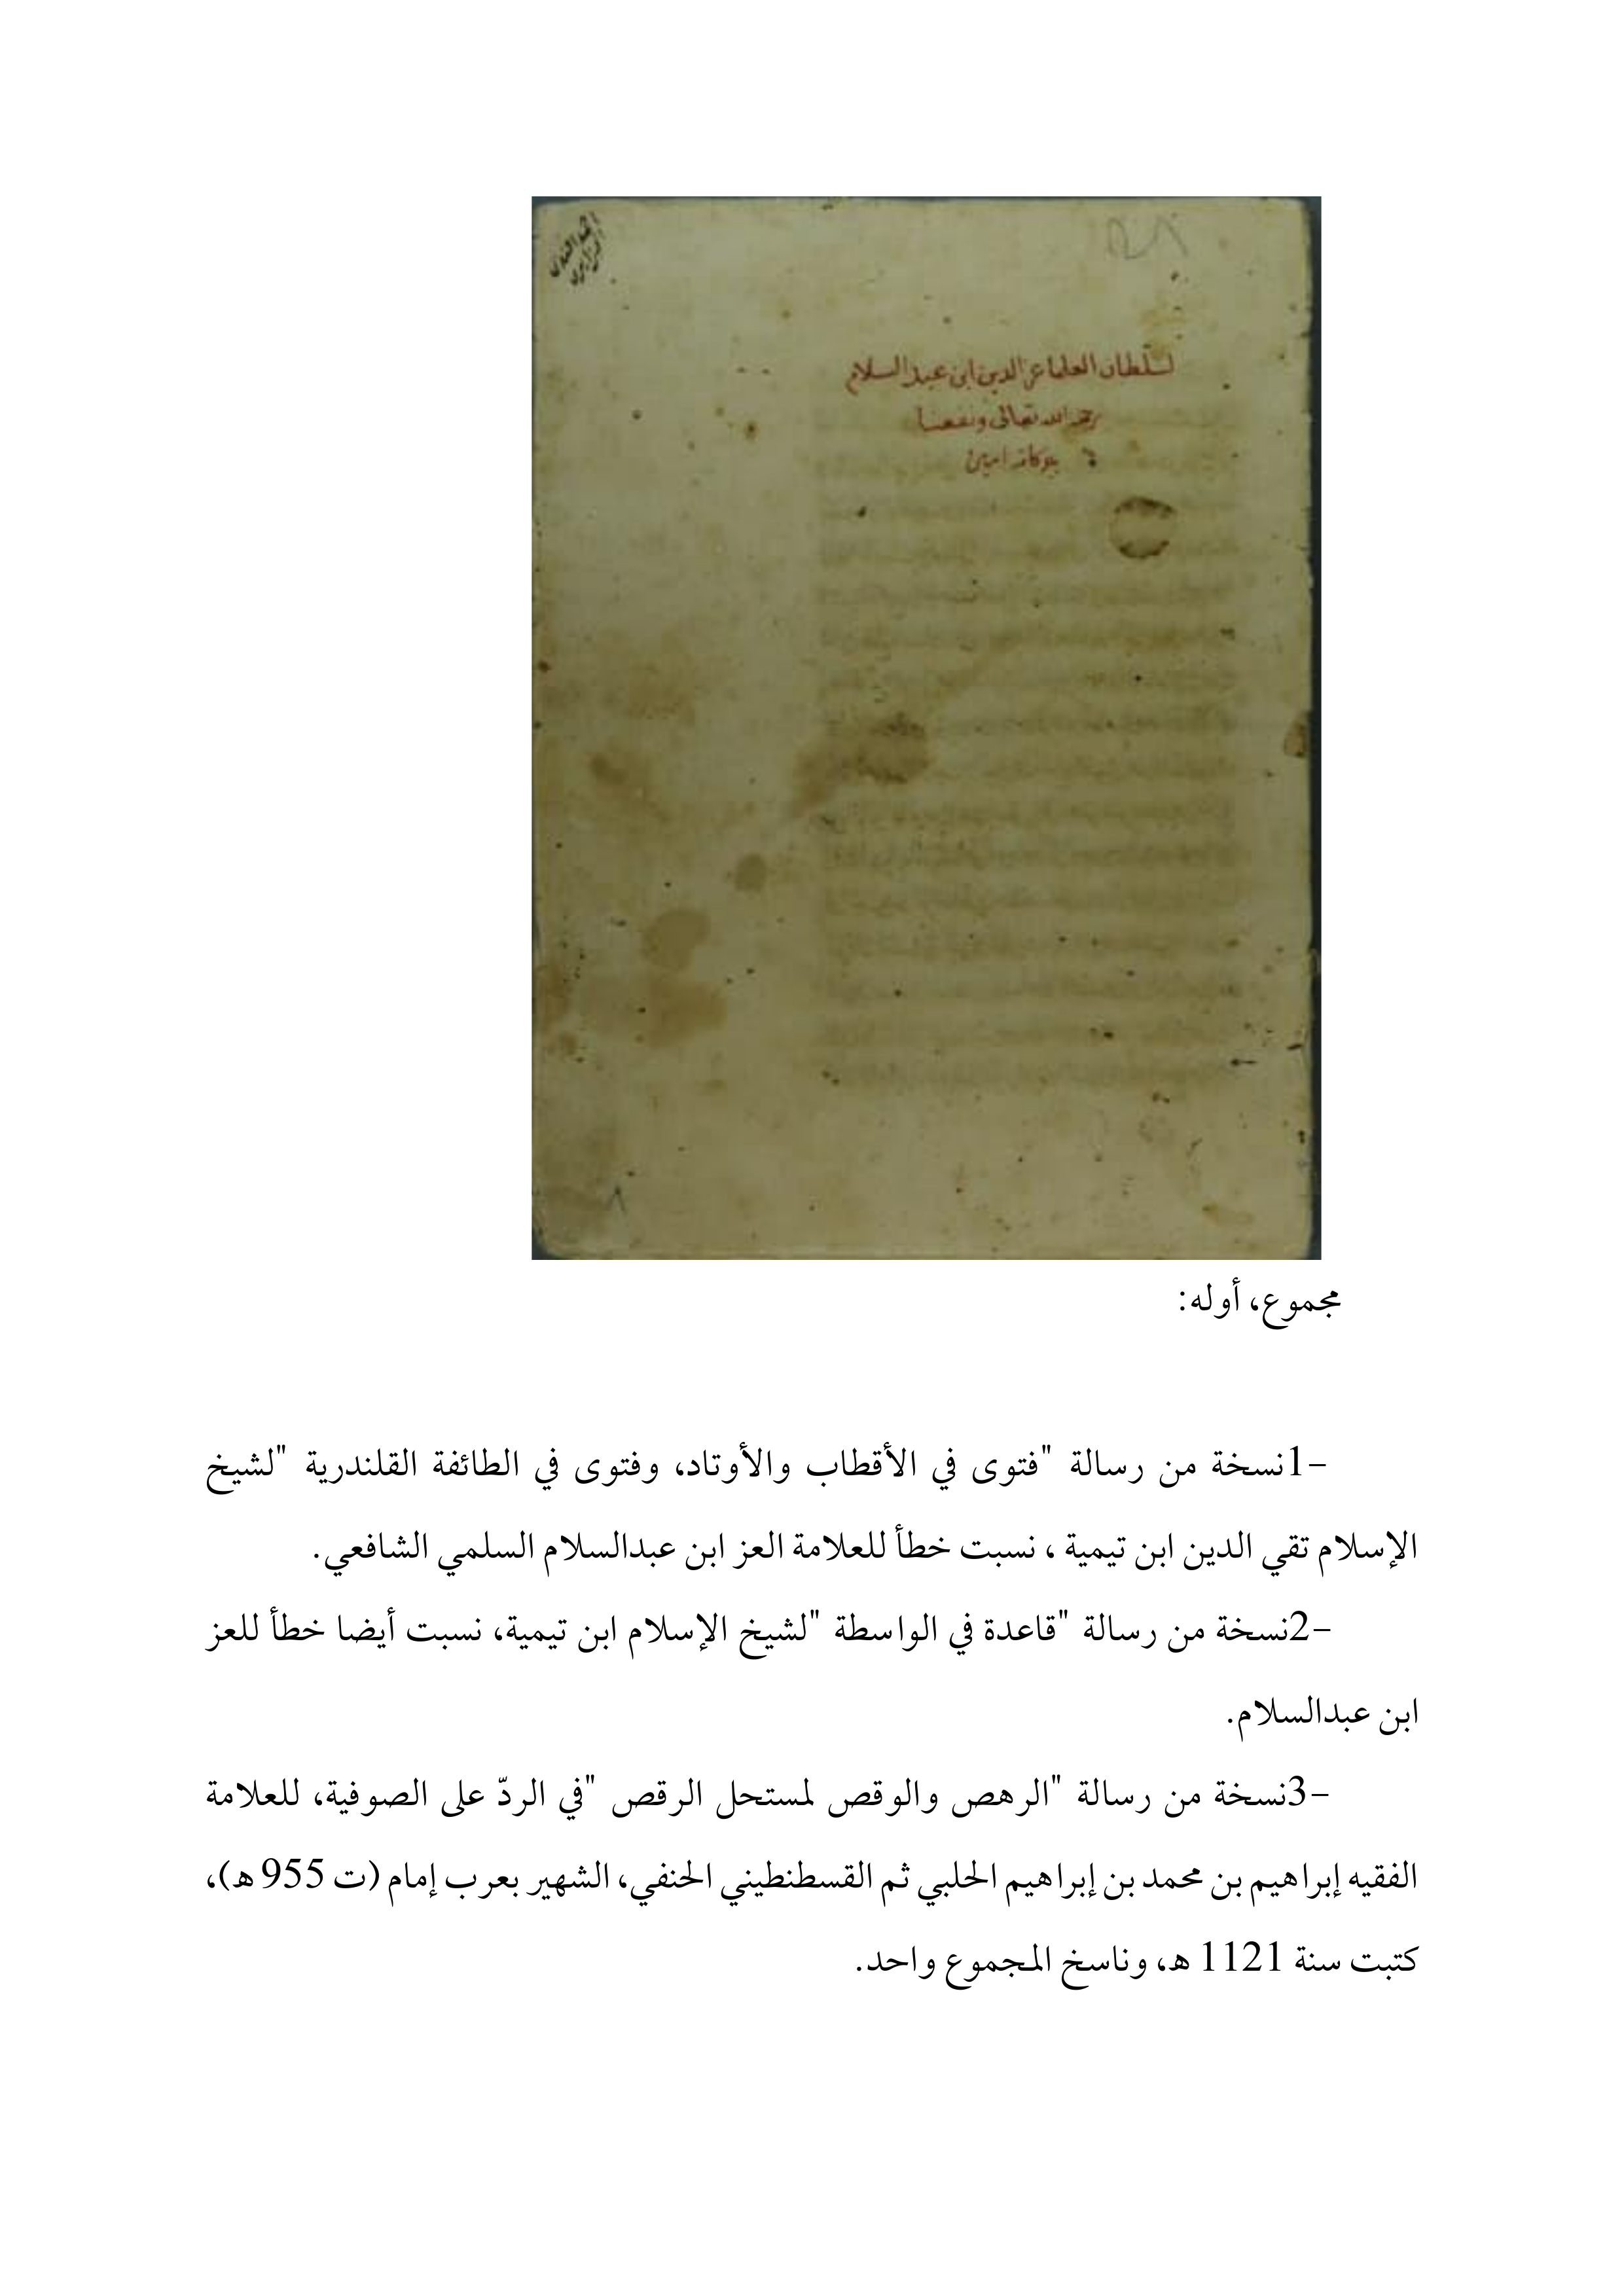 لسلطان العلما عز الدين ابن عبد السلام
رحمه الله تعالى ونفعنا
ببركاته امين
٨
مجموع، أوله:
-1نسخة من رسالة "فتوى في الأقطاب والأوتاد، وفتوى في الطائفة القلندرية "لشيخ
الإسلام تقي الدين ابن تيمية ، نسبت خطأ للعلامة العز ابن عبدالسلام السلمي الشافعي.
-2نسخة من رسالة "قاعدة في الواسطة "لشيخ الإسلام ابن تيمية، نسبت أيضا خطأ للعز
ابن عبدالسلام.
-3نسخة من رسالة "الرهص والوقص لمستحل الرقص "في الردّ على الصوفية، للعلامة
الفقيه إبراهيم بن محمد بن إبراهيم الحلبي ثم القسطنطيني الحنفي، الشهير بعرب إمام (ت 955 ه)،
كتبت سنة 1121 ه، وناسخ المجموع واحد.